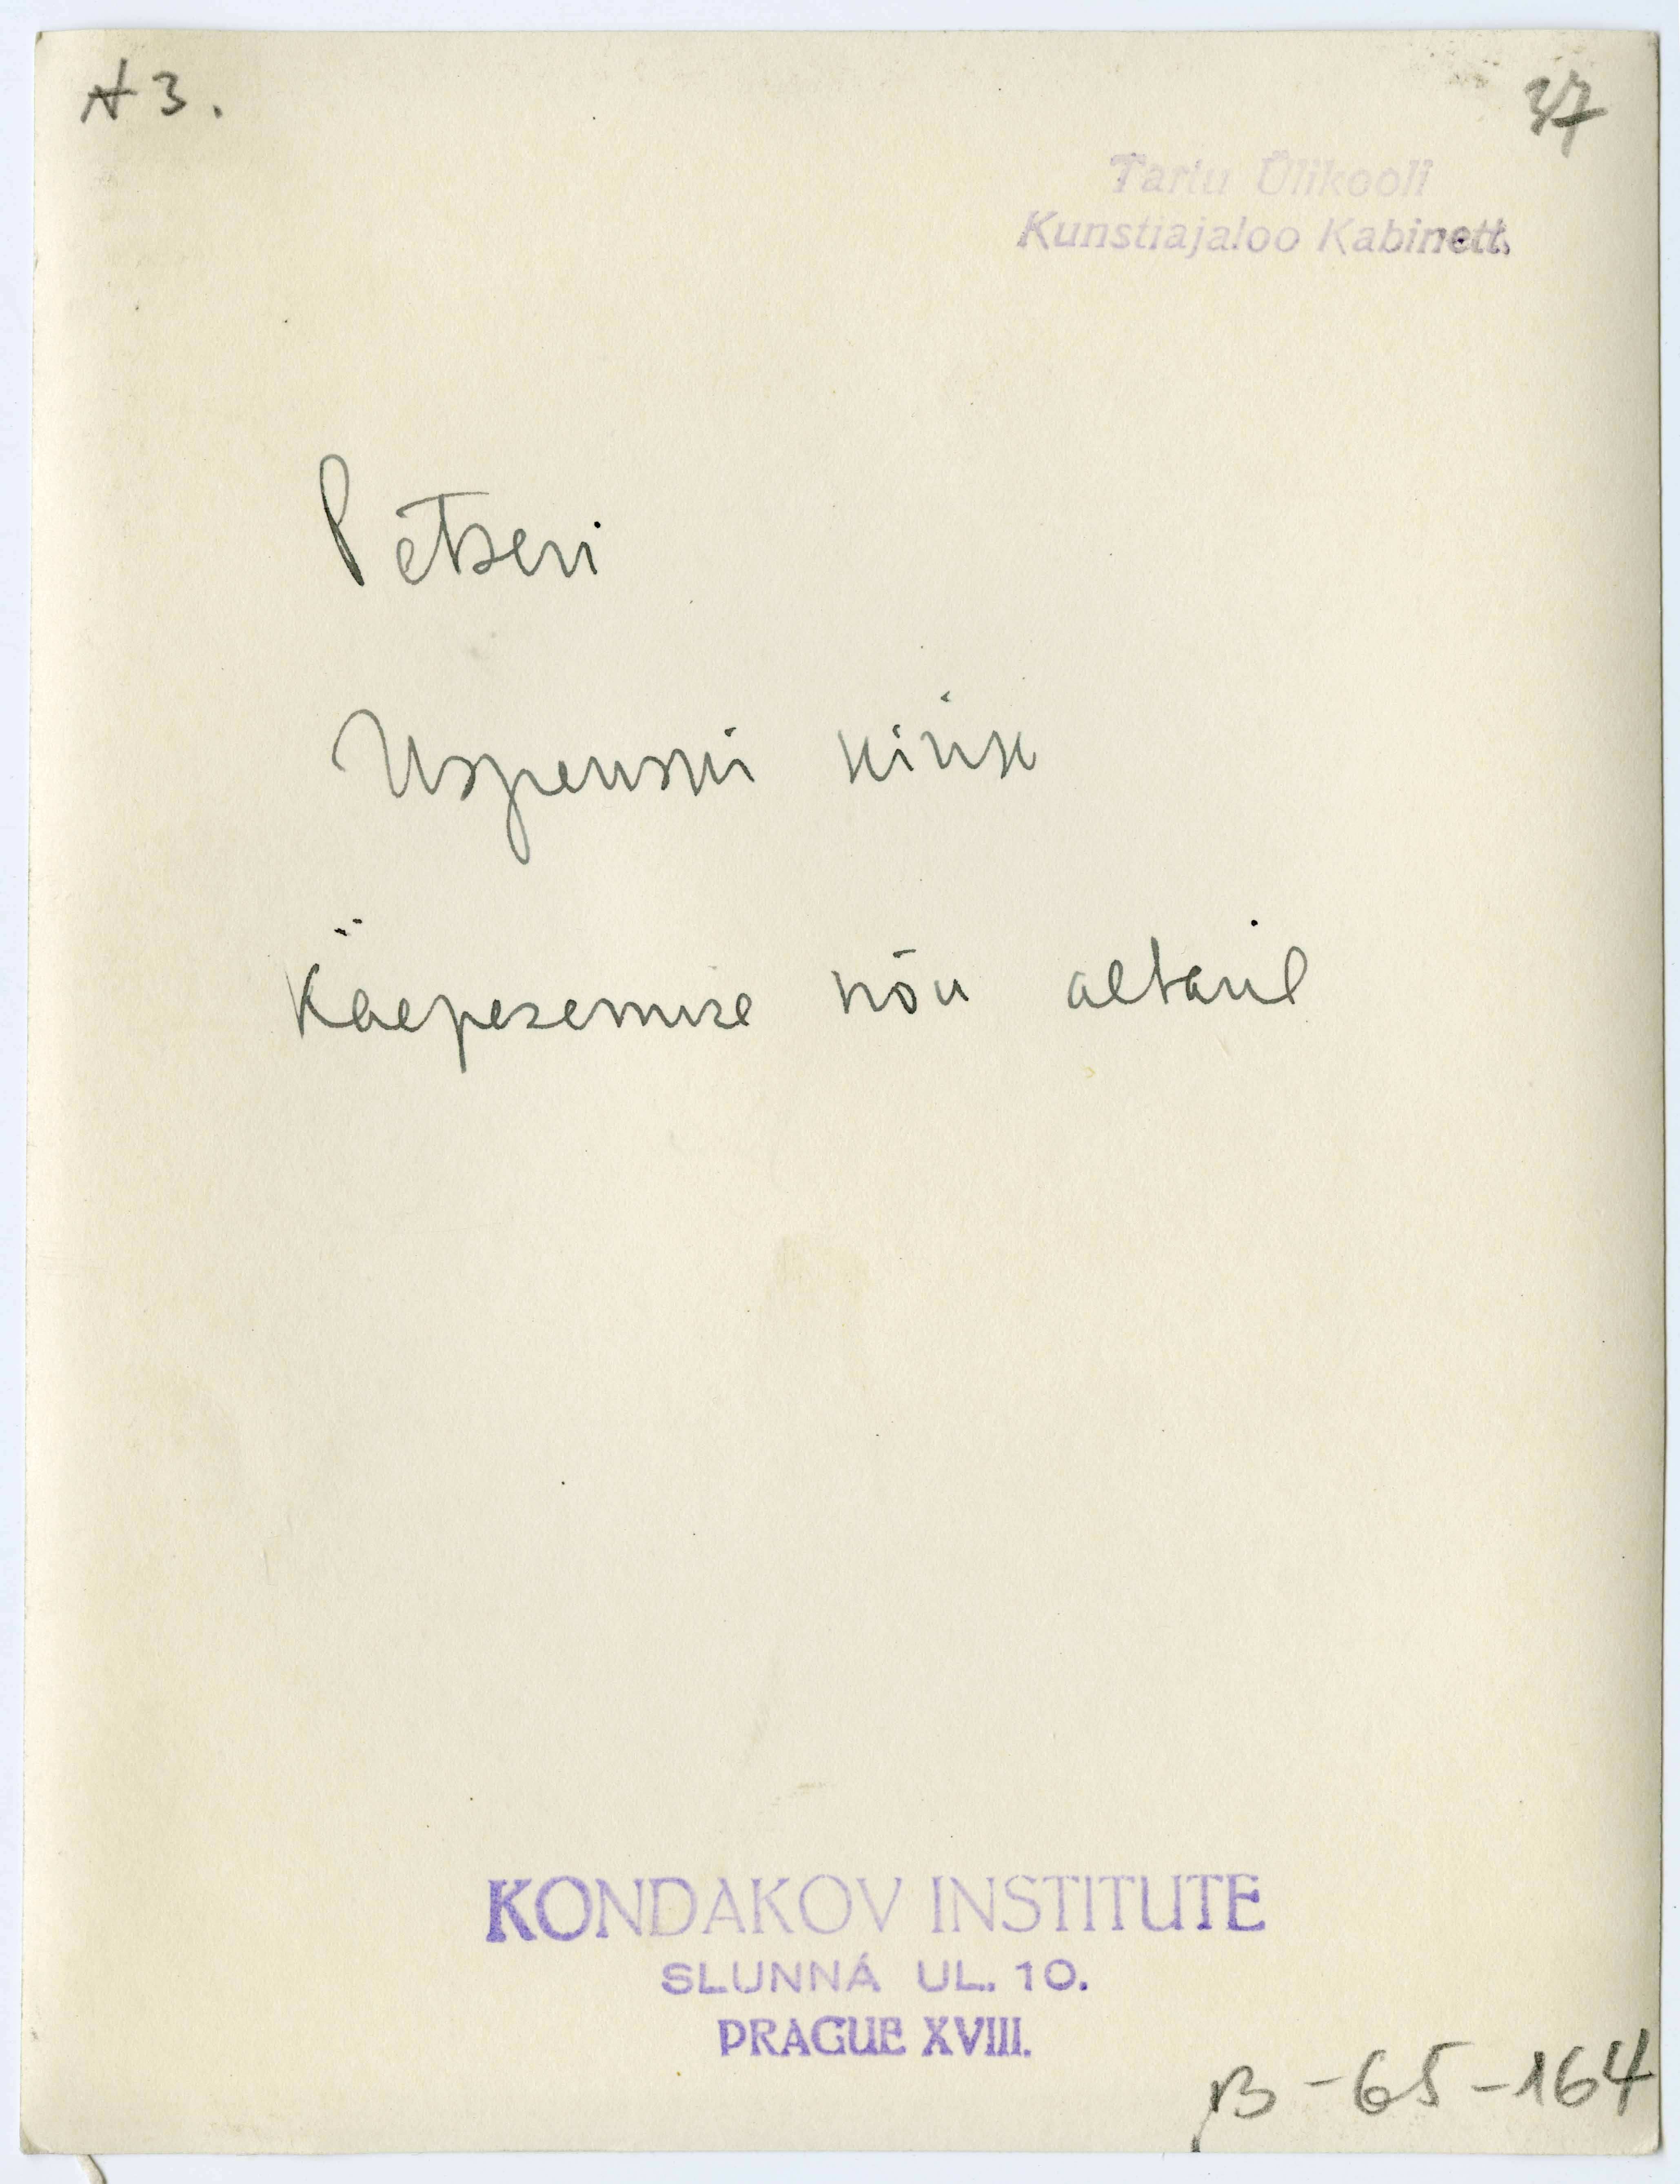 A 3.
37
Tartu Ülikooli
Kunstiajaloo Kabinett.
Petseri
Uspenski kirik
Käepesemise nõu altaril
KONDAKOV INSTITUTE
SLUNNÁ UL. 10.
PRAGUE XVIII.
B-65-164